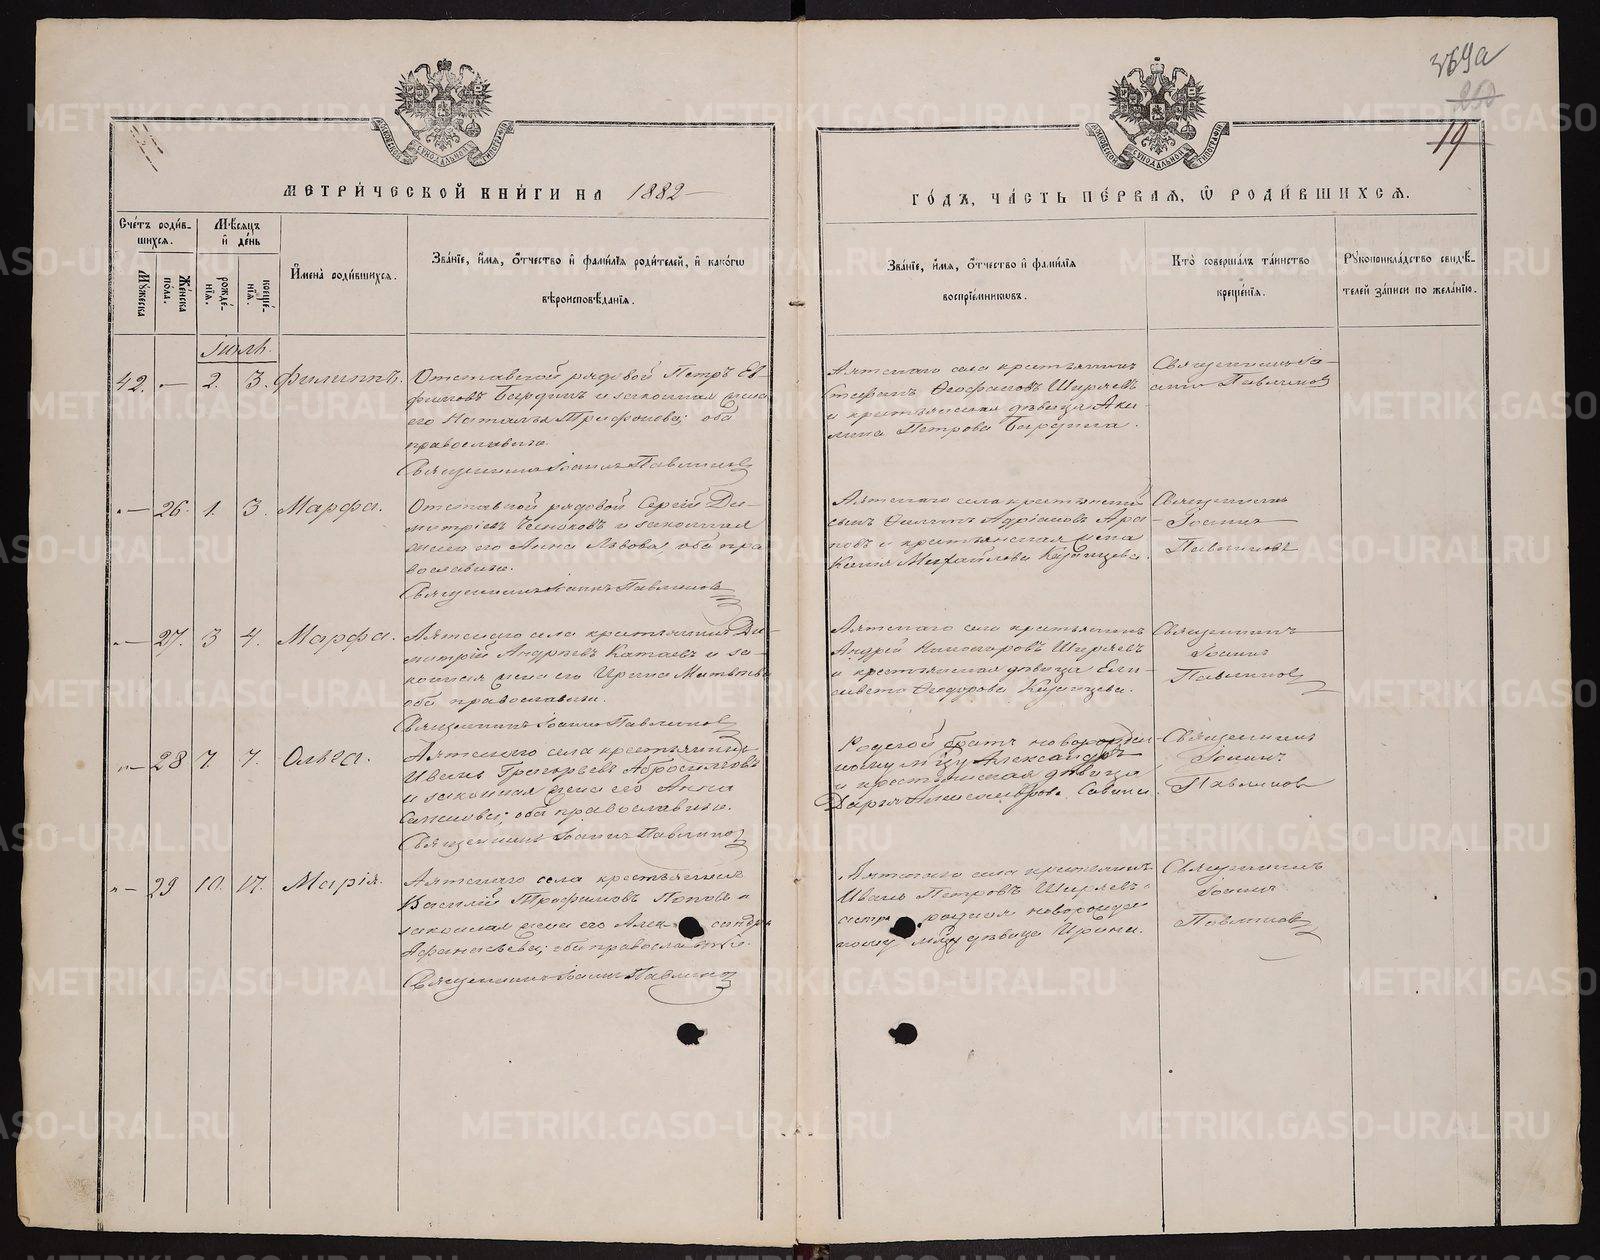 369а
250
19
МОСКОВСКОЙ СѴНОДАЛЬНОЙ ТИПОГРАФІИ
МОСКОВСКОЙ СѴНОДАЛЬНОЙ ТИПОГРАФІИ
МЕТРИ́ЧЕСКОЙ КНИ́ГИ НА 1882
ГО́ДЪ, ЧА́СТЬ ПЕ́РВАЯ, Ѡ РОДИ́ВШИХСЯ.
Сче́тъ роди́в-
шихся.
Му́жеска
Же́нска
по́ла.
Мѣ́сяцъ
и де́нь
рожде́-
нія.
креще́-
нія.
И҆мена̀ роди́вшихся.
Зва́ніе, и҆́мя, ѻ҆́тчество и҆ фами́лія роди́телей, и҆ како́гѡ
вѣроисповѣ́данія.
Зва́ніе, и҆́мя, ѻ҆́тчество и҆ фами́лія
воспріе́мниковъ.
Кто̀ соверша́лъ та́инство
креще́нія.
Рукоприкла́дство свидѣ́-
телей за́писи по жела́нію.
Іюль.
42. — 2. 3. Филиппъ.
Отставной рядовой Петръ Ев-
фимовъ Бардинъ и законная жена
его Наталья Трифонова; оба
православные.
Священникъ Іоаннъ Павлиновъ
Аятскаго села крестьянинъ
Стефанъ Ѳеофановъ Ширяевъ
и крестьянская дѣвица Аки-
лина Петрова Бардина.
Священникъ Іо-
аннъ Павлиновъ
— 26. 1. 3. Марфа.
Отставной рядовой Сергій Ди-
митріевъ и законная
жена его Анна Львова, оба пра-
вославные.
Священникъ Іоаннъ Павлиновъ
Аятскаго села крестьянскій
сынъ Филиппъ Адріановъ Ара-
повъ и крестьянская жена
Михайлова Казанцева.
Священникъ
Іоаннъ
Павлиновъ
— 27. 3 4. Марфа.
Аятскаго села крестьянинъ Ди-
митрій Андреевъ Катаевъ и за-
конная жена его Ирина Матвѣева
оба православные.
Священникъ Іоаннъ Павлиновъ
Аятскаго села крестьянинъ
Андрей Никаноровъ Ширяевъ
и крестьянская дѣвица Ели-
савета Ѳеодорова Казанцева.
Священникъ
Іоаннъ
Павлиновъ
— 28 7. 7. Ольга.
Аятскаго села крестьянинъ
Иванъ Григорьевъ Абросимовъ
и законная жена его Анна
оба православные.
Священникъ Іоаннъ Павлиновъ
Родной братъ новорожден-
ному м-цу Александръ
и крестьянская дѣвица
Дарья Александрова Савина.
Священникъ
Іоаннъ
Павлиновъ
— 29 10. 17. Марія.
Аятскаго села крестьянинъ
Василій Трофимовъ Поповъ и
законная жена его Александра
Афанасьева; оба православные.
Священникъ Іоаннъ Павлиновъ
Аятскаго села крестьянинъ
Иванъ Петровъ Ширяевъ и
сестра родная новорожден-
ному м-цу дѣвица Ирина.
Священникъ
Іоаннъ
Павлиновъ
METRIKI.GASO-URAL.RU